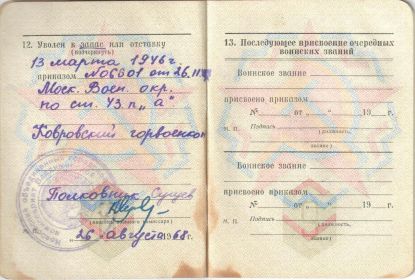 12. Уволен в запас или отставку
(подчеркнуть)
13 марта 1946 г.
приказом № 06601 от 26.11
Моск. Воен. окр.
по ст. 43 п. „а"
Ковровский горвоенком
Полковник
(подпись военного комиссара)
„26" августа 1968 г.
13. Последующее присвоение очередных
воинских званий
Воинское звание
присвоено приказом
№ от „ " 19 г.
м. п. Подпись
(должность,
звание)
Воинское звание
присвоено приказом
№ от „ " 19 г.
м. п. Подпись
(должность,
звание)